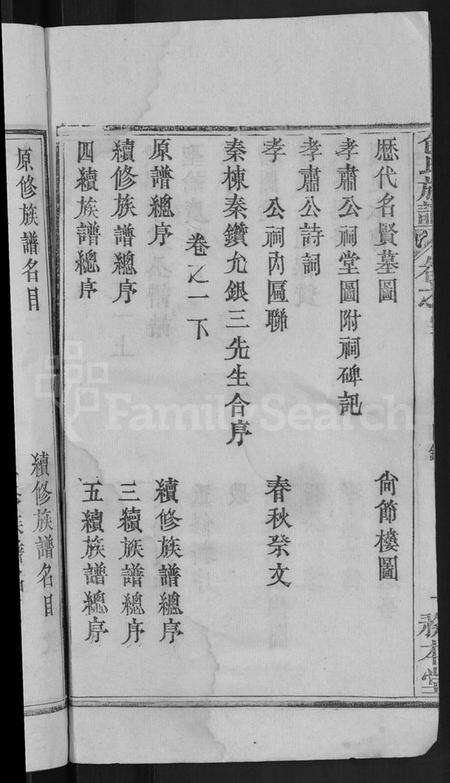 氏族譜 卷之
務本堂
歷代名賢墓圖 尙節樓圖
孝肅公祠堂圖附祠碑記
孝肅公詩詞
孝 公祠內匾聯 春秋祭文
秦棟秦鑽允銀三先生合序
卷之一下
原譜總序 續修族譜總序
續修族譜總序 三續族譜總序
四續族譜總序 五續族譜總序
原修族譜名目 續修族譜名目
FamilySearch